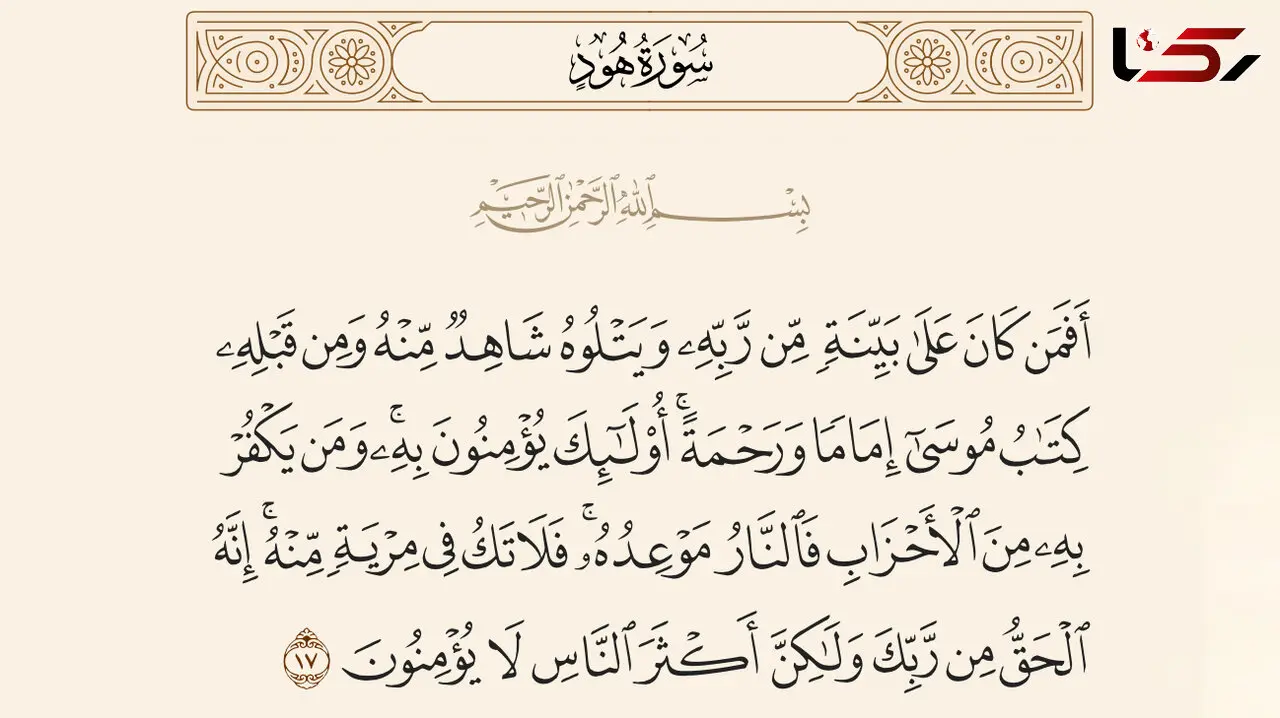 سُورَةُ هُودٍ
رکنا
بِسْمِ ٱللَّهِ ٱلرَّحْمَٰنِ ٱلرَّحِيمِ
أَفَمَن كَانَ عَلَىٰ بَيِّنَةٍ مِّن رَّبِّهِۦ وَيَتْلُوهُ شَاهِدٌ مِّنْهُ وَمِن قَبْلِهِۦ
كِتَٰبُ مُوسَىٰٓ إِمَامًا وَرَحْمَةً ۚ أُو۟لَٰٓئِكَ يُؤْمِنُونَ بِهِۦ ۚ وَمَن يَكْفُرْ
بِهِۦ مِنَ ٱلْأَحْزَابِ فَٱلنَّارُ مَوْعِدُهُۥ ۚ فَلَا تَكُ فِى مِرْيَةٍ مِّنْهُ ۚ إِنَّهُ
ٱلْحَقُّ مِن رَّبِّكَ وَلَٰكِنَّ أَكْثَرَ ٱلنَّاسِ لَا يُؤْمِنُونَ ١٧